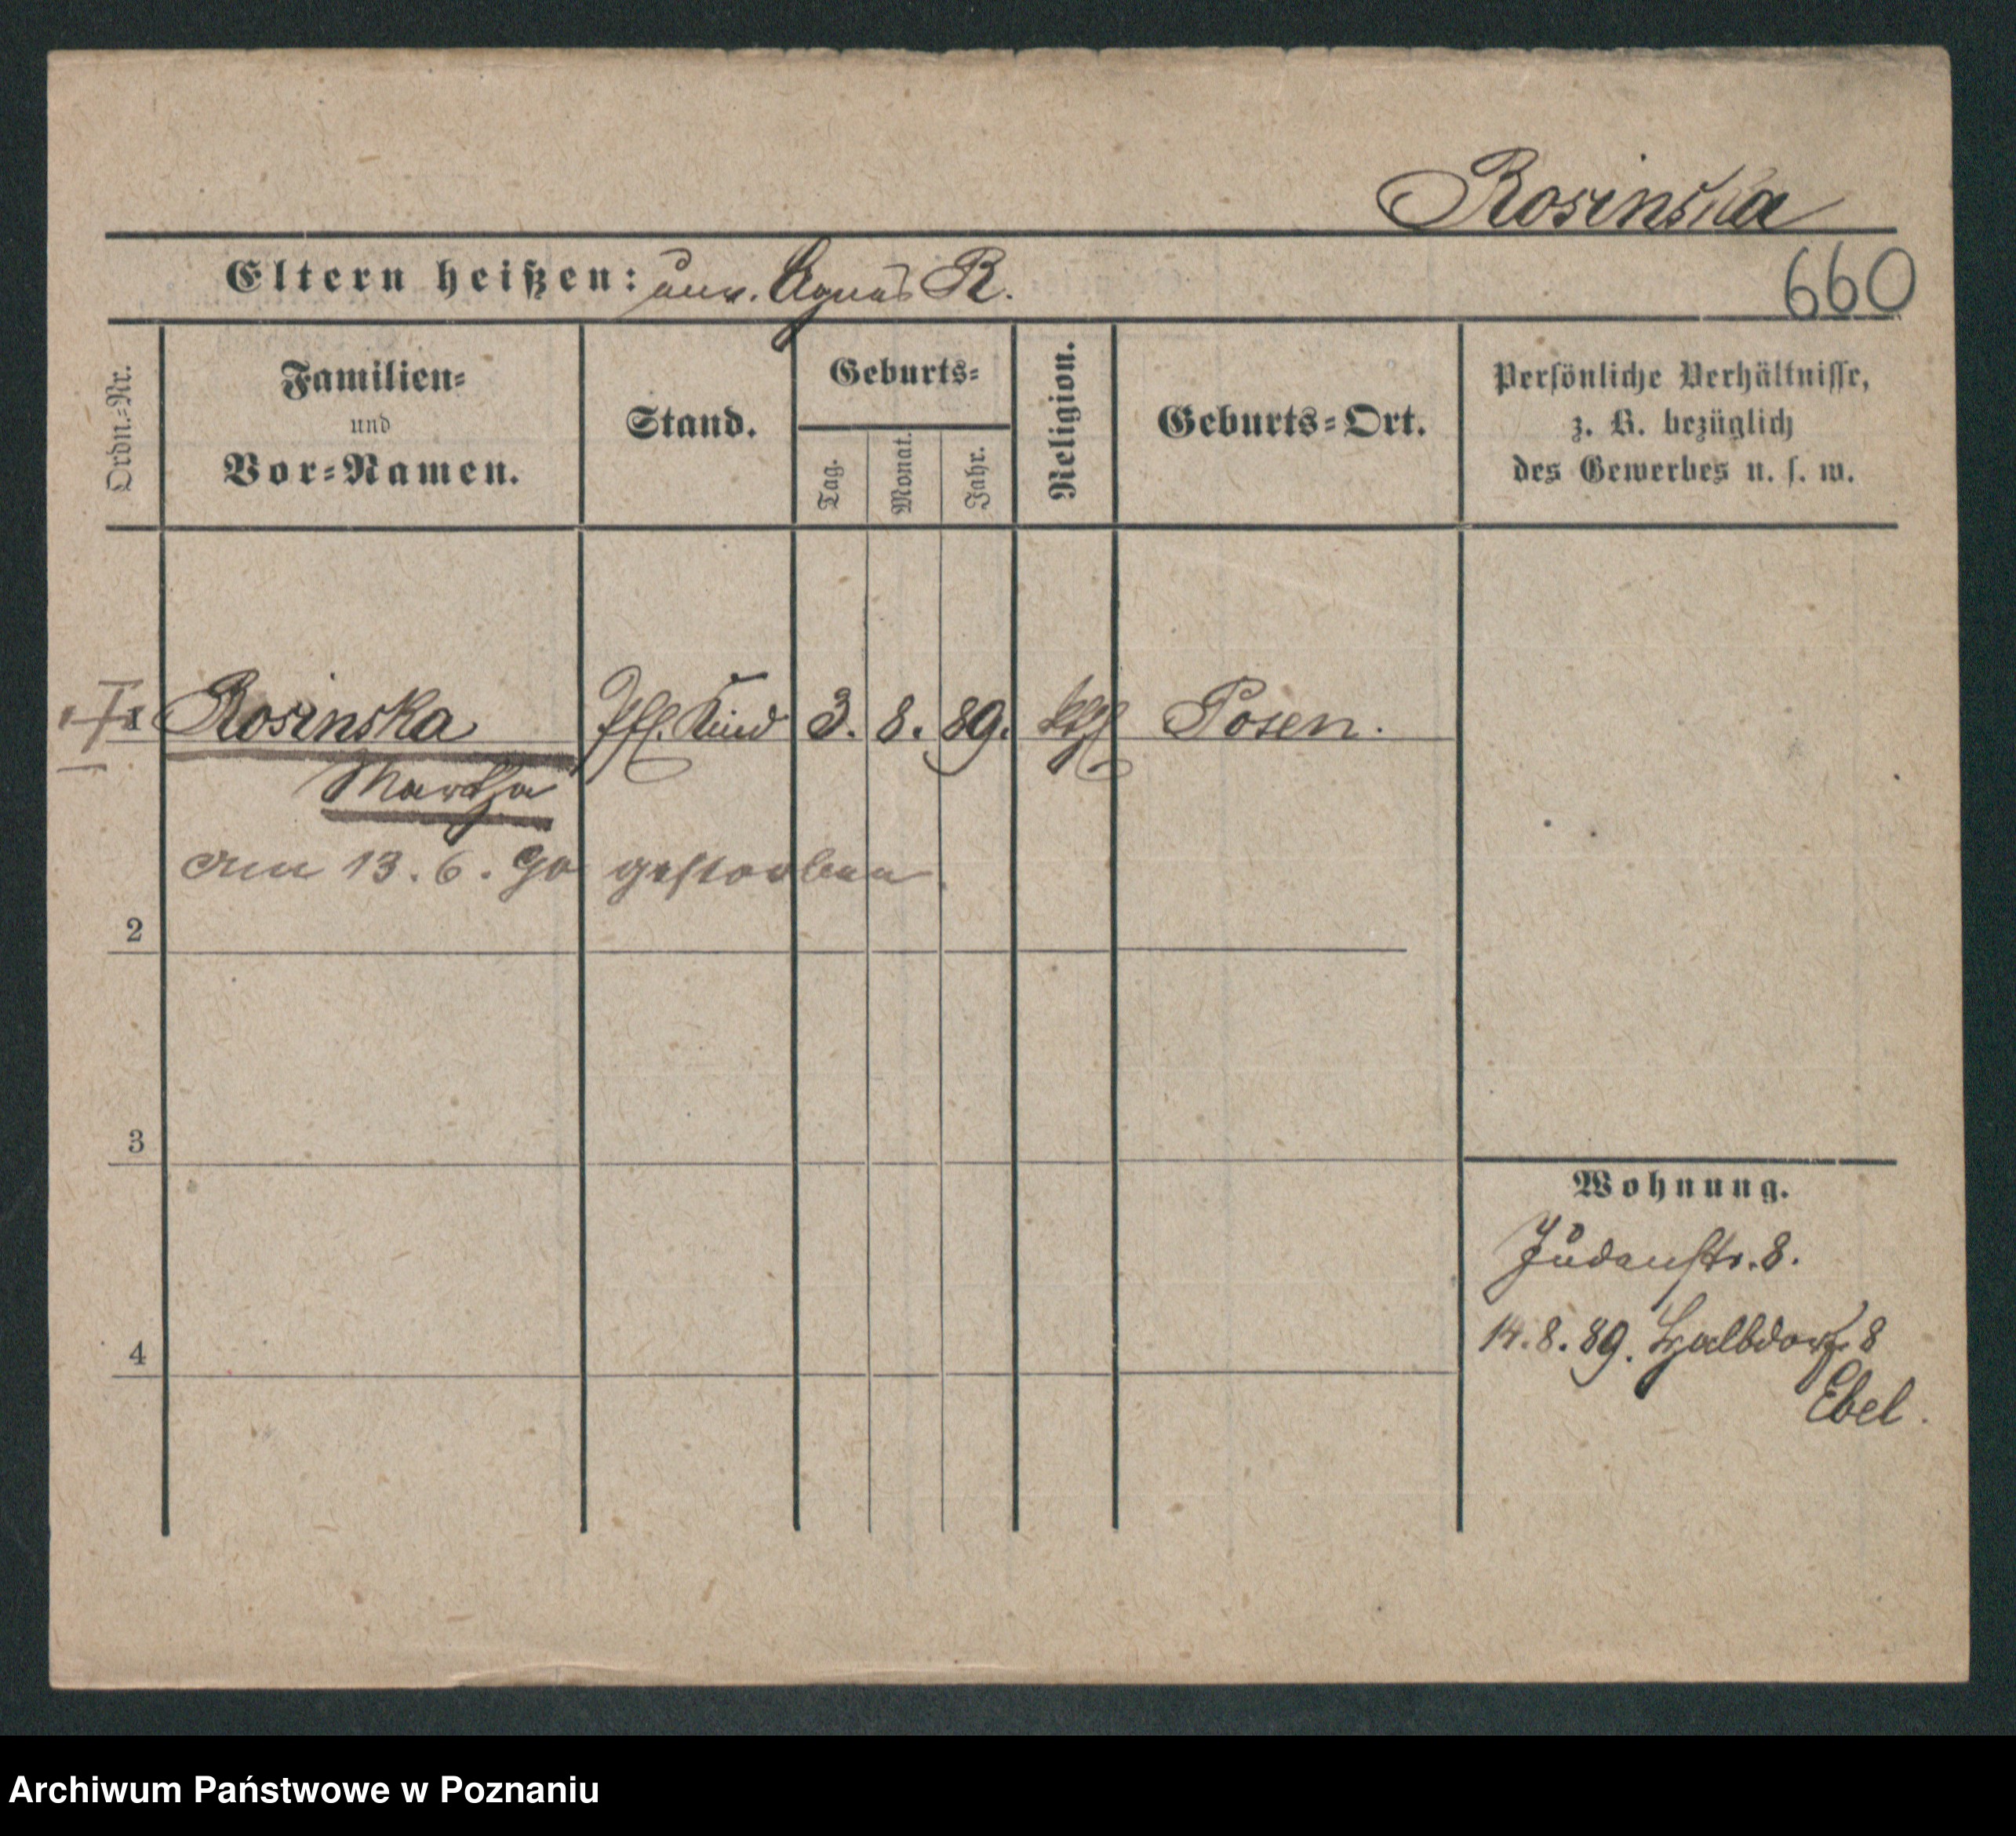 Rosinska
Eltern heißen: unv. Agnes R.
660
Ordn.-Nr.
Familien-
und
Vor-Namen.
Stand.
Geburts-
Tag.
Monat.
Jahr.
Religion.
Geburts-Ort.
Persönliche Verhältnisse,
z. B. bezüglich
des Gewerbes u. s. w.
1 Rosinska Pfl. Kind 3. 8. 89. kth Posen.
Martha
am 13. 6. 90 gestorben
2
3
4
Wohnung.
Judenstr. 8.
14. 8. 89. Halbdorf 8
Ebel.
Archiwum Państwowe w Poznaniu